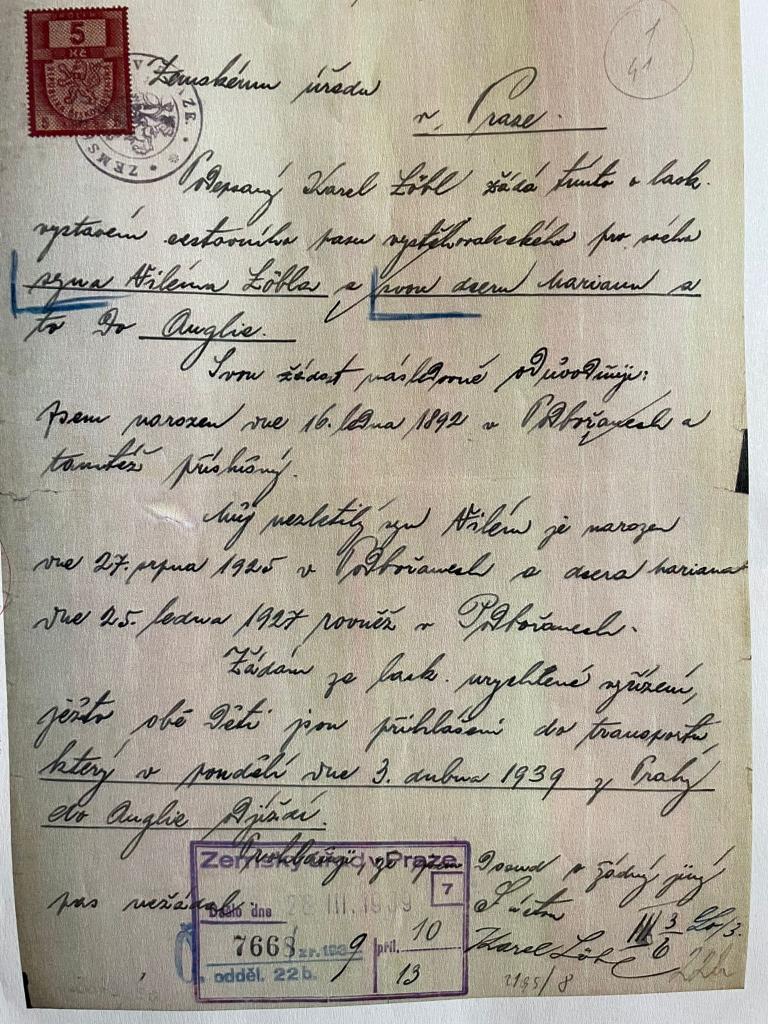 KOLEK
5
Kč
1
41
Zemskému úřadu
v Praze.
Podepsaný Karel Löbl žádá tímto o lask.
vystavení cestovního pasu vystěhovaleckého pro svého
syna Viléma Löbla a svou dceru Mariann a
to do Anglie.
Svou žádost následovně odůvodňuji:
Jsem narozen dne 16. ledna 1892 v Podbořanech a
tamtéž příslušný.
Můj nezletilý syn Vilém je narozen
dne 27. srpna 1925 v Podbořanech a dcera Mariana
dne 25. ledna 1927 rovněž v Podbořanech.
Žádám za lask. urychlené vyřízení,
ježto obě děti jsou přihlášeni do transportu,
který v pondělí dne 3. dubna 1939 z Prahy
do Anglie odjíždí.
Prohlašuji, že jsem dosud o žádný jiný
pas nežádal.
S úctou
Karel Löbl
Zemský úřad v Praze
7
Došlo dne 28 III. 1939
Č. 7668 z r. 1939 příl. 10
odděl. 22b. 9 13
III 3/6
22b